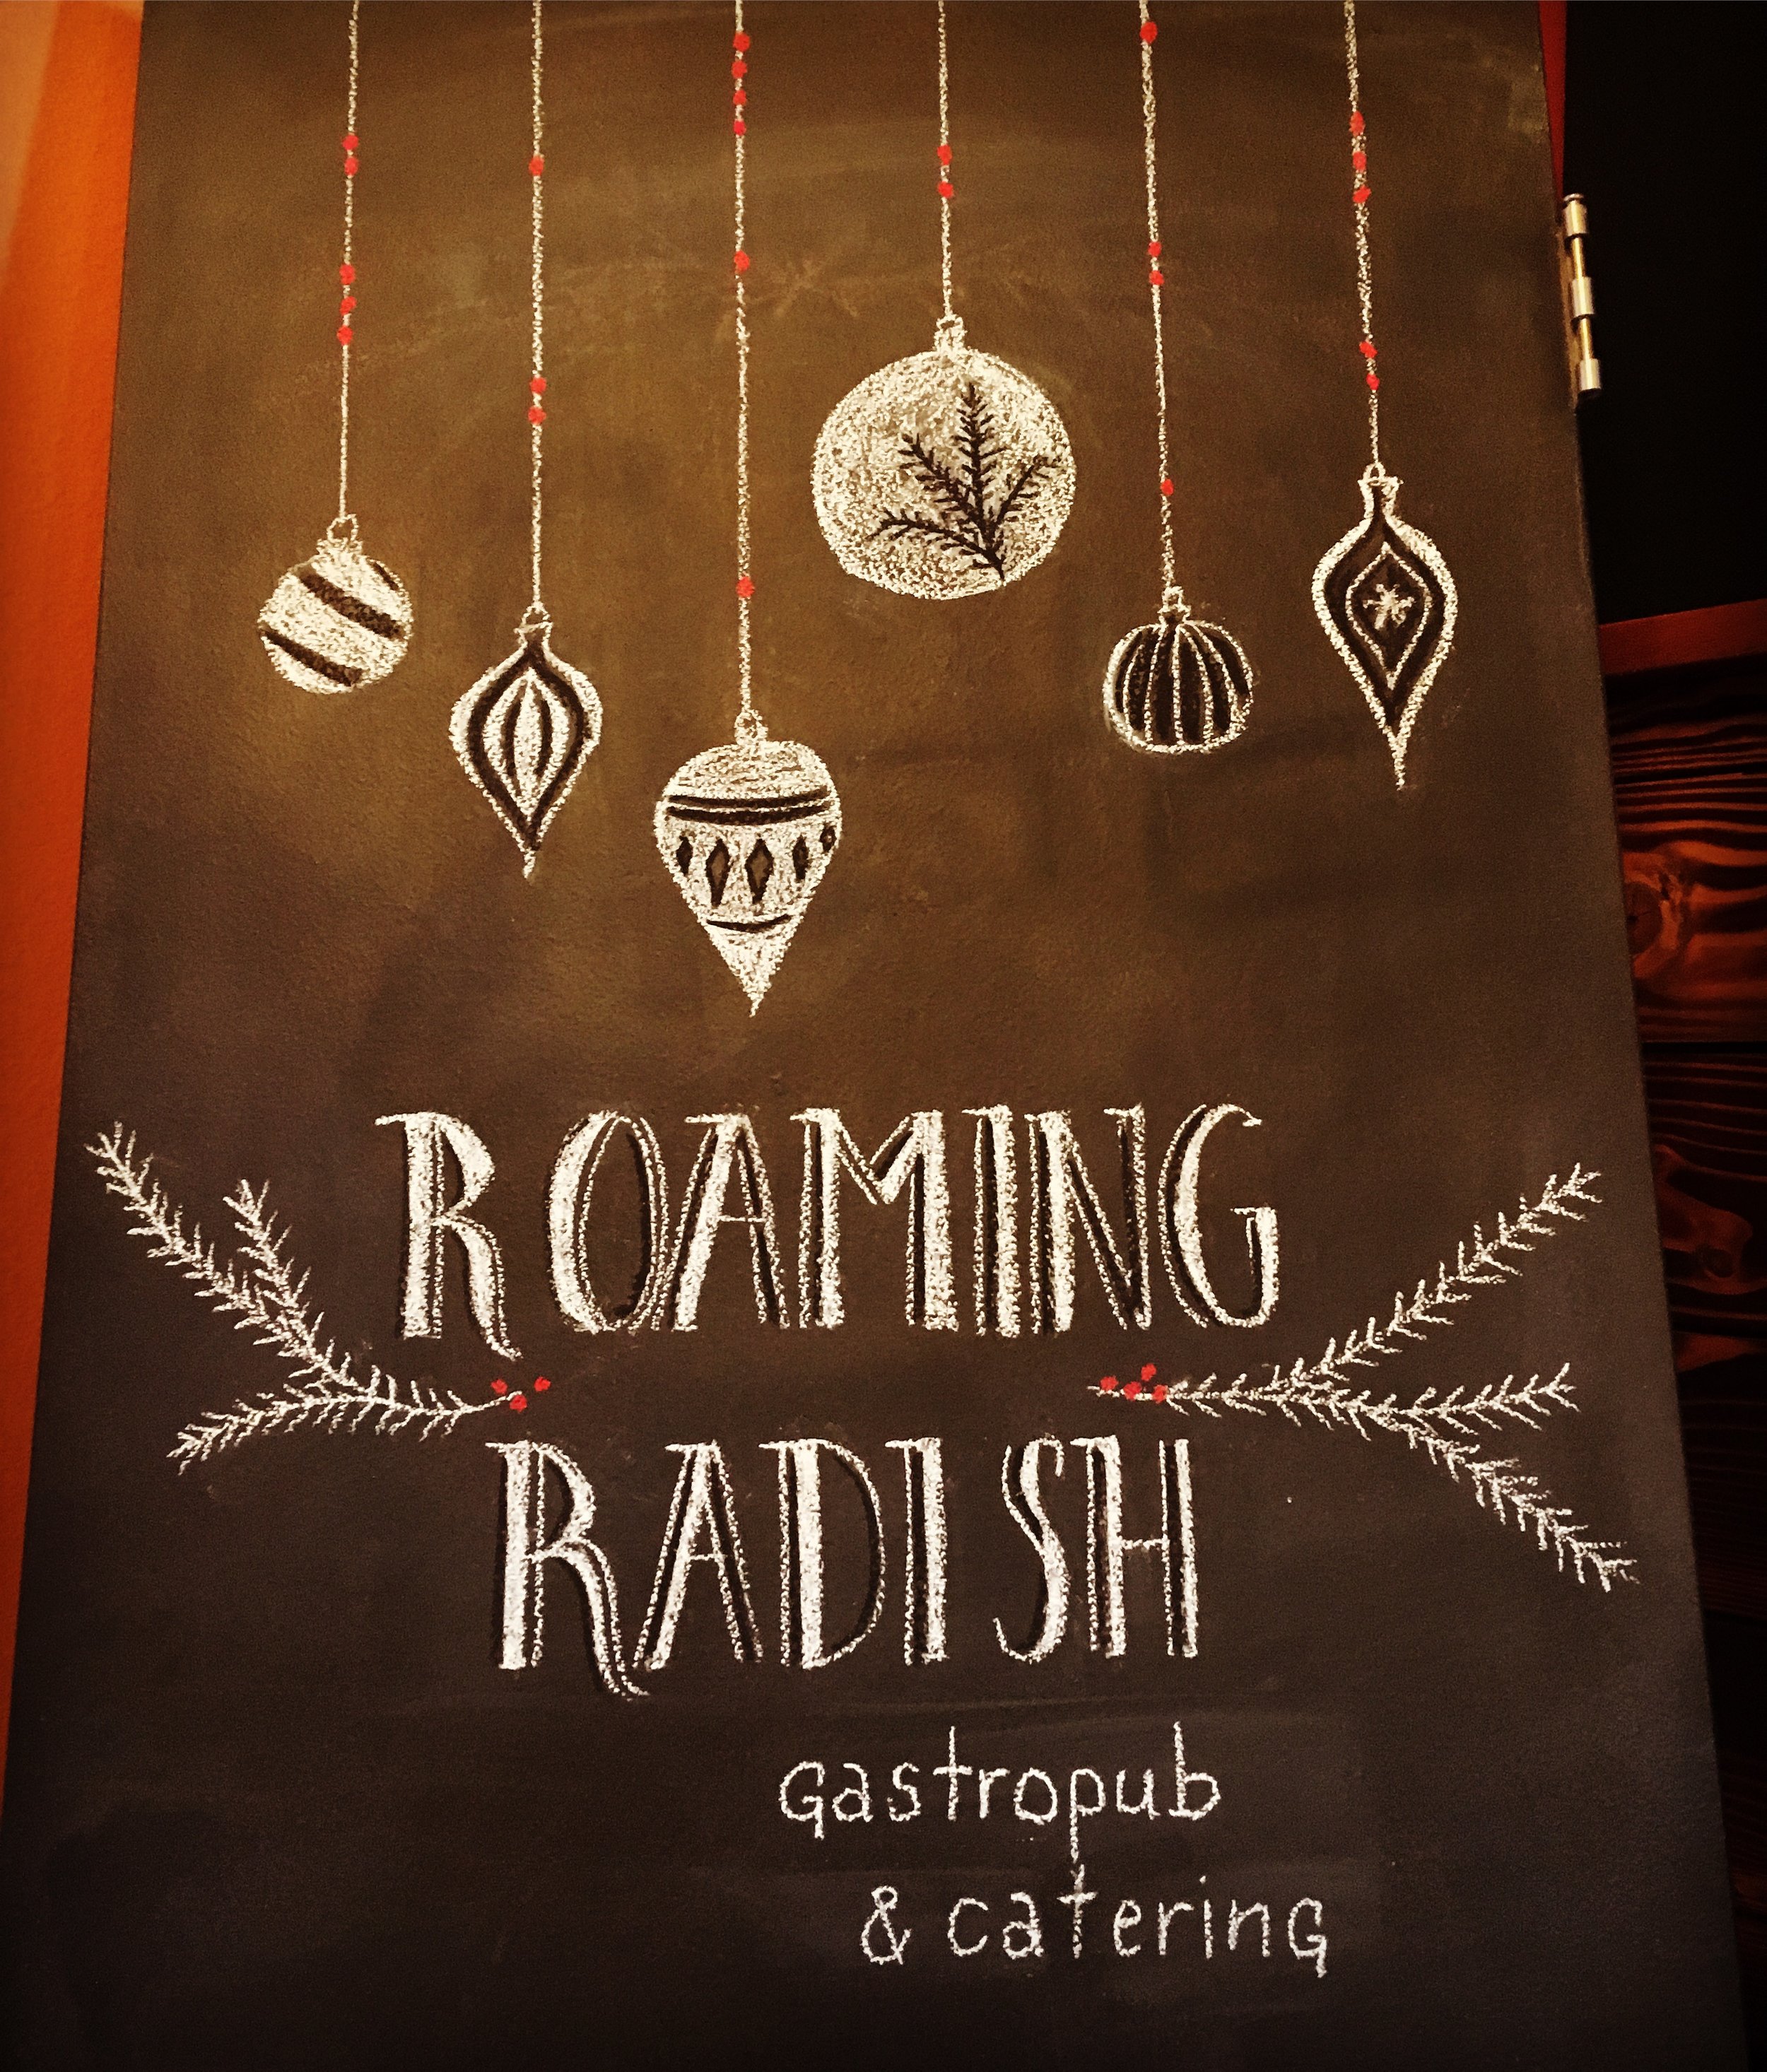 ROAMING
RADISH
gastropub
& catering